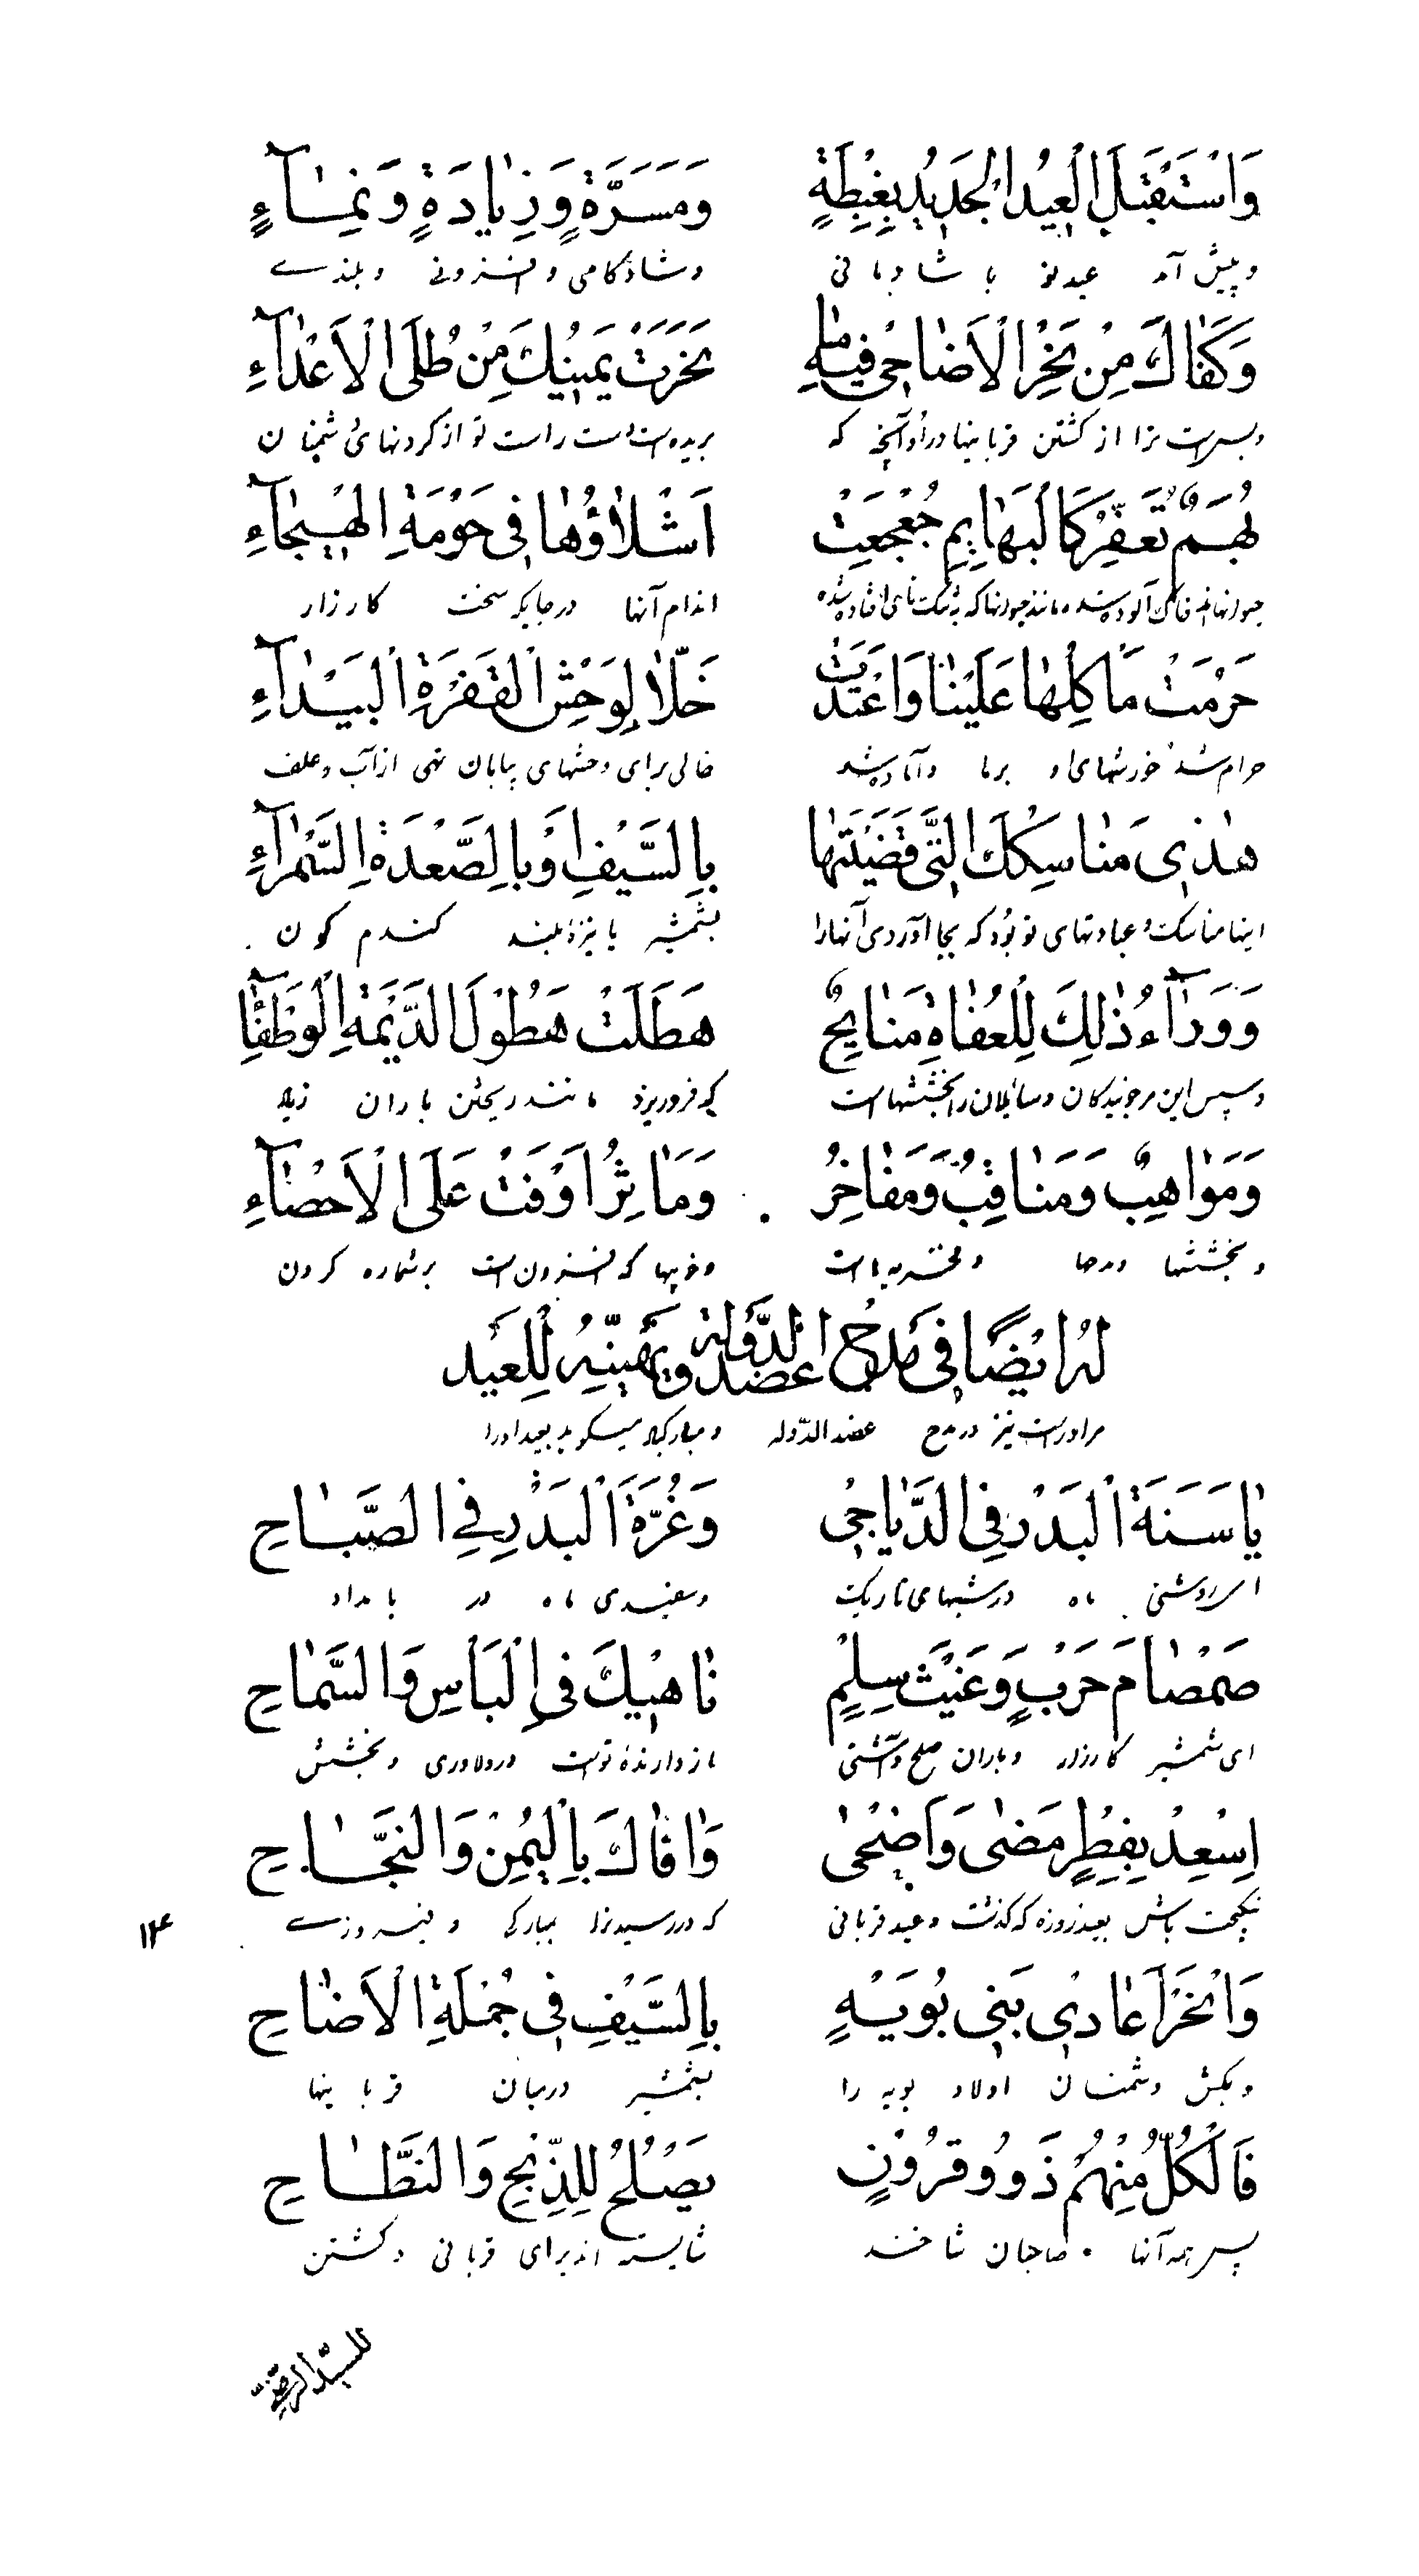 وَاسْتَقْبَلِ الْعِيدَ الْجَدِيدَ بِغِبْطَةٍ وَمَسَرَّةٍ وَزِيَادَةٍ وَنَمَآءٍ
و پیش آمد عید نو با شادمانی و شادکامی و افزونی و بلندی
وَكَفَاكَ مِنْ نَحْرِ الْأَضَاحِي فِيهِ مَا نَحَرَتْ يَمِينُكَ مِنْ طُلَى الْأَعْدَآءِ
و بس است ترا از کشتن قربانیها در او آنچه که بریده است دست راست تو از گردنهای دشمنان
بُهَمٌ تُعَفَّرُ كَالْبَهَايِمِ جُعْجِعَتْ اَشْلَاؤُهَا فِي حَوْمَةِ الْهَيْجَآءِ
اندام آنها در جایگه سخت کارزار
حَرُمَتْ مَآكِلُهَا عَلَيْنَا وَاغْتَدَتْ خَلَّا لِوَحْشِ الْقَفْرَةِ الْبَيْدَآءِ
حرام شد خورشهای او بر ما و آماده شد خالی برای وحشهای بیابان تهی از آب و علف
هٰذِي مَنَاسِكُكَ الَّتِي قَضَيْتَهَا بِالسَّيْفِ اَوْ بِالصَّعْدَةِ السَّمْرَآءِ
اینها مناسک و عبادتهای تو بود که بجا آوردی آنها را بشمشیر یا نیزهٔ بلند گندم گون
وَوَرَآءَ ذٰلِكَ لِلْعُفَاةِ مَنَايِحٌ هَطَلَتْ هَطُولَ الدِّيمَةِ الْوَطْفَآءِ
و سپس این مر جویندگان و سائلان را بخششهاست که فرو ریزد مانند ریختن باران
وَمَوَاهِبٌ وَمَنَاقِبٌ وَمَفَاخِرُ وَمَآثِرُ اَوْفَتْ عَلَى الْأَحْصَآءِ
و بخششها و مدحها و خوبیها که افزون است بر شماره کردن
لَهُ اَيْضًا فِي مَدْحِ عَضُدِ الدَّوْلَةِ وَيُهَنِّيهِ لِلْعِيدِ
مر او راست نیز در مدح عضد الدّوله و مبارکباد میگوید بعید او را
يَا سَنَةَ الْبَدْرِ فِي الدَّيَاجِي وَغُرَّةَ الْبَدْرِ فِي الصَّبَاحِ
ای روشنی ماه در شبهای تاریک و سفیدی ماه در بامداد
صَمْصَامَ حَرْبٍ وَغَيْثَ سِلْمٍ نَاهِيكَ فِي الْبَأْسِ وَالسَّمَاحِ
ای شمشیر کارزار و باران صلح و آشتی بازدارندهٔ تو است در دلاوری و بخشش
اِسْعِدْ بِفِطْرٍ مَضٰى وَاَضْحٰى وَافَاكَ بِالْيُمْنِ وَالنَّجَاحِ
نیکبخت باش بعید روزه که گذشت و عید قربانی که در رسید ترا بمبارکی و فیروزی
۱۲۴
وَانْحَرْ اَعَادِي بَنِي بُوَيْهٍ بِالسَّيْفِ فِي جُمْلَةِ الْأَضَاحِ
و بکش دشمنان اولاد بویه را بشمشیر در میان قربانیها
فَالْكُلُّ مِنْهُمْ ذَوُو قُرُونٍ يَصْلُحُ لِلذَّبْحِ وَالنَّطَاحِ
پس همه آنها صاحبان شاخند شایسته اند برای قربانی و کشتن
للسیّد الرضیّ